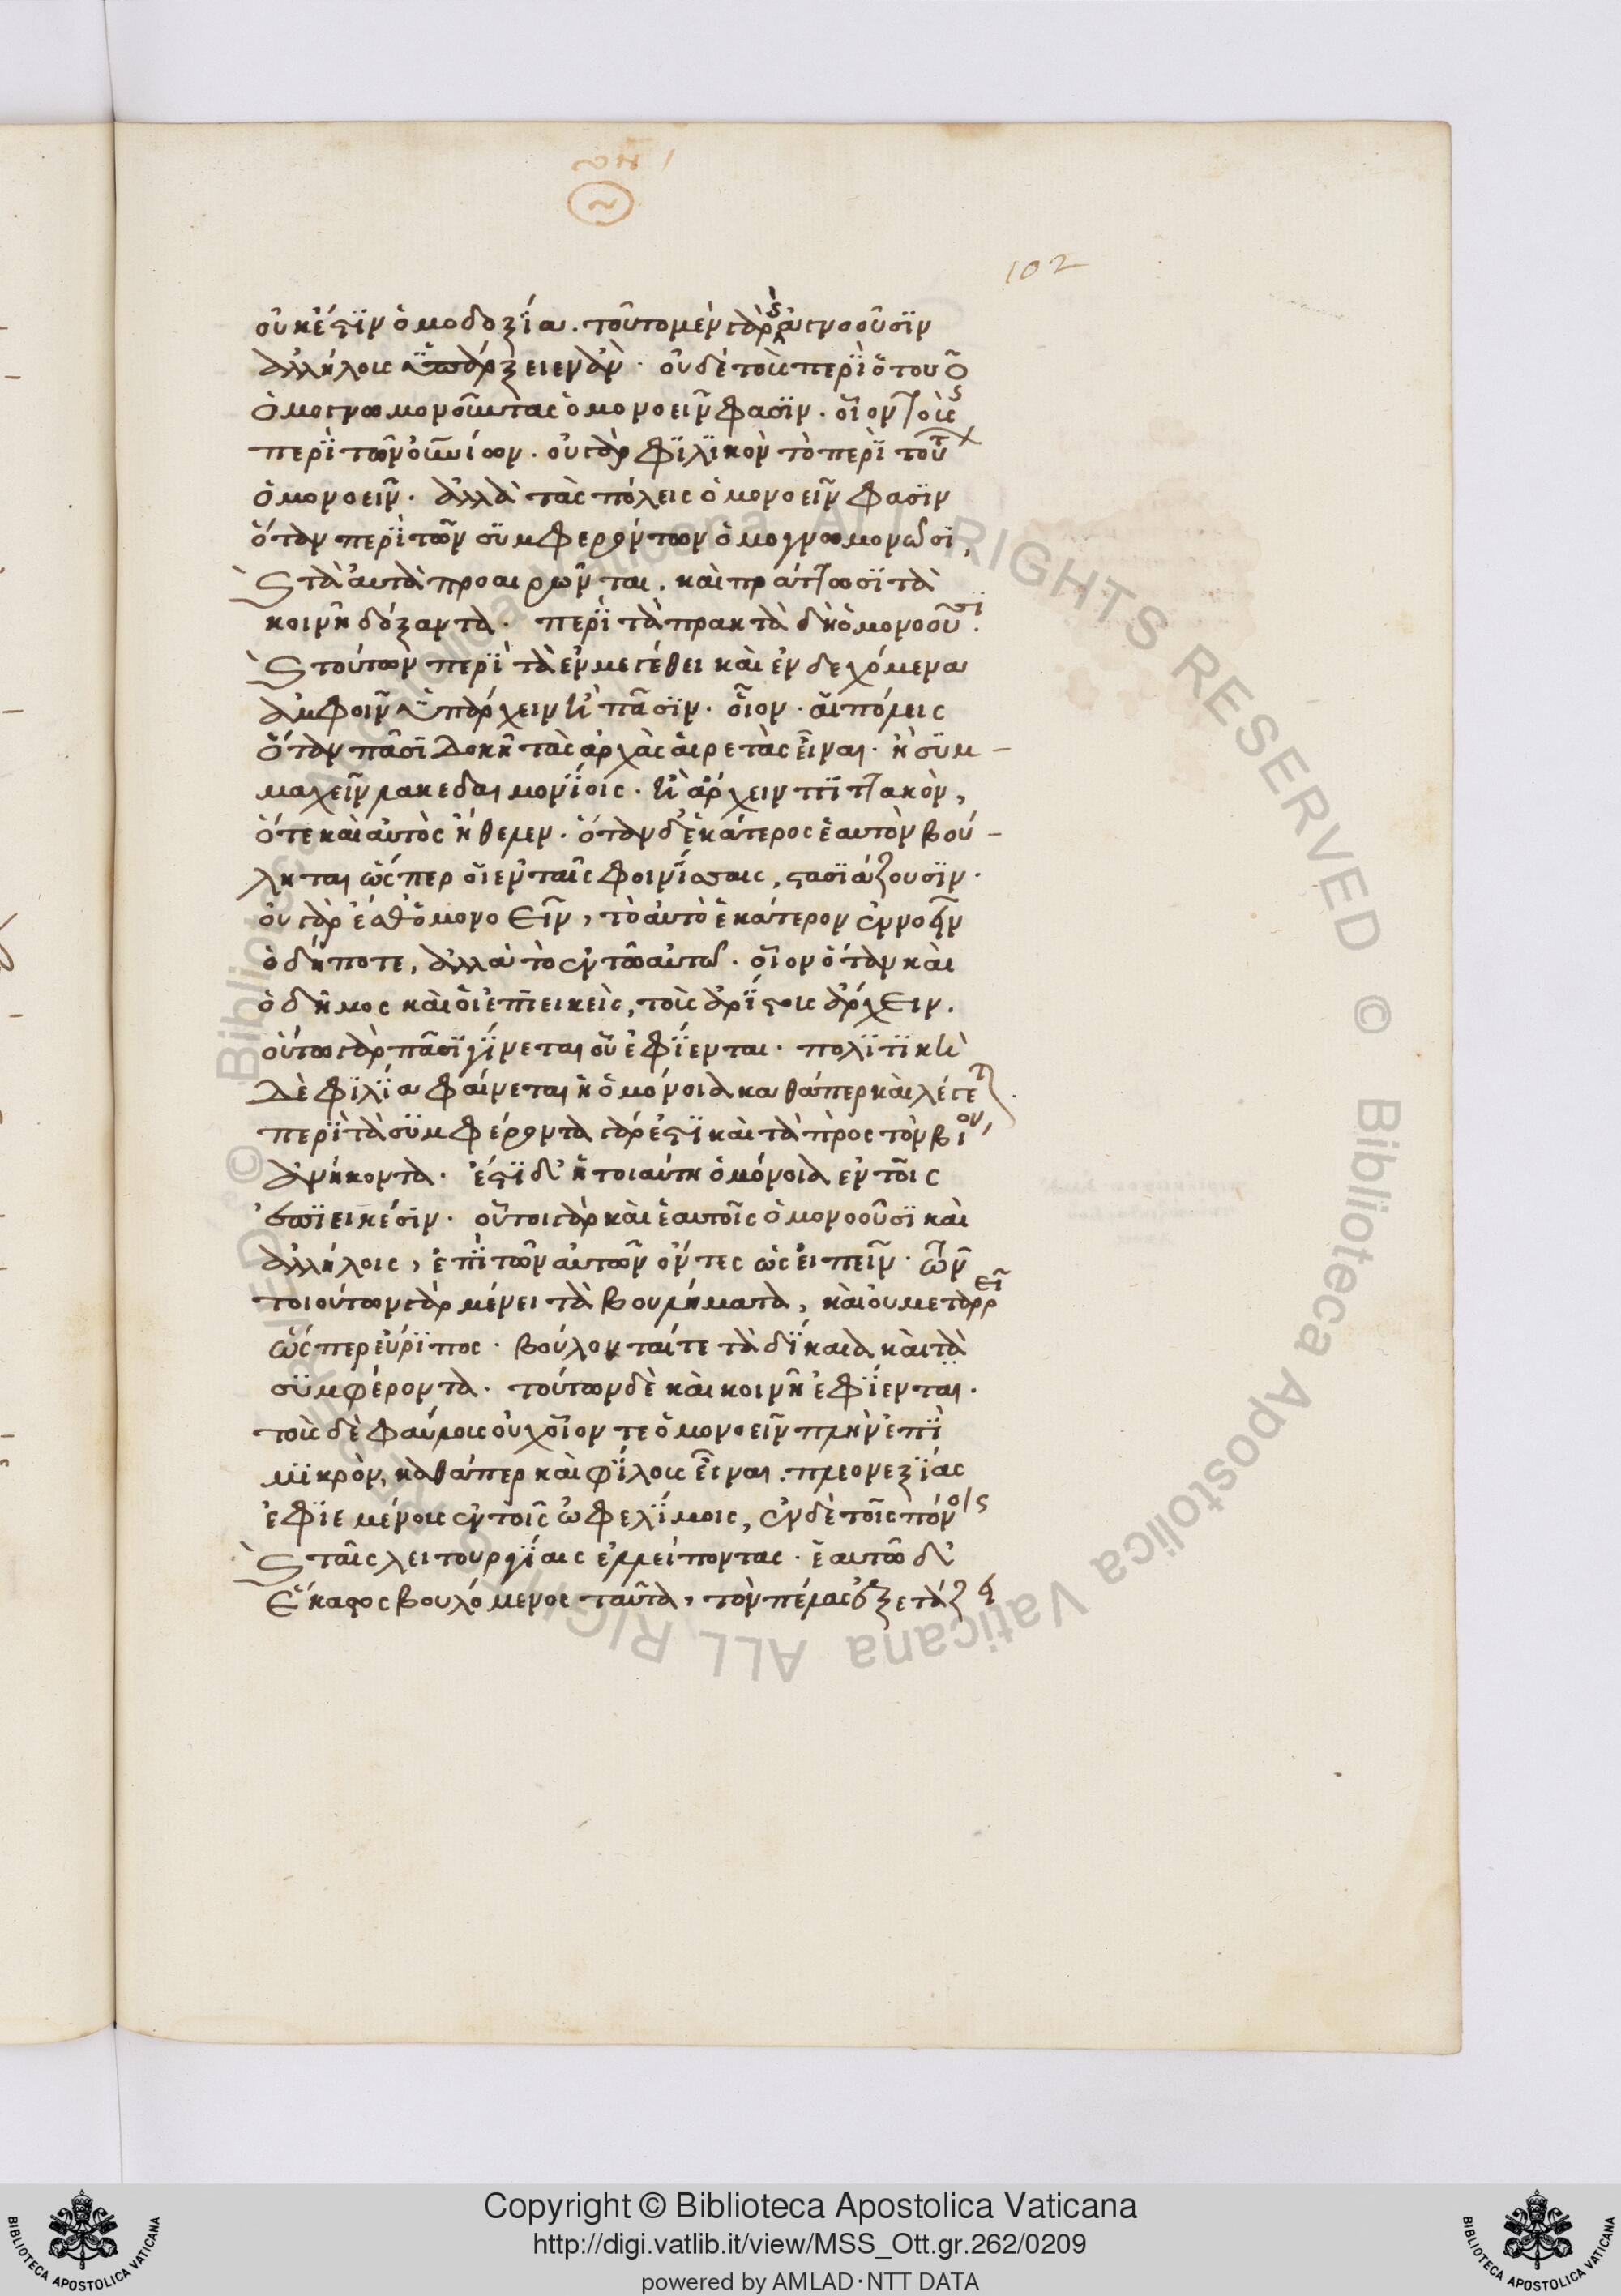 102
οὐκ ἔστιν ὁμοδοξία. τοῦτο μὲν γὰρ καὶ ἀγνοοῦσιν
ἀλλήλους ὑπάρξειεν ἂν. οὐδὲ τοὺς περὶ ὁτουοῦ
ὁμογνωμονοῦντας ὁμονοεῖν φασὶν. οἷον τοὺς
περὶ τῶν οὐρανίων. οὐ γὰρ φιλικὸν τὸ περὶ τούτων
ὁμονοεῖν. ἀλλὰ τὰς πόλεις ὁμονοεῖν φασὶν
ὅταν περὶ τῶν συμφερόντων ὁμογνωμονῶσι,
καὶ τὰ αὐτὰ προαιρῶνται. καὶ πράττωσι τὰ
κοινῆ δόξαντα. περὶ τὰ πρακτὰ δὴ ὁμονοοῦσι.
καὶ τούτων περὶ τὰ ἐν μεγέθει καὶ ἐνδεχόμενα
ἀμφοῖν ὑπάρχειν ἢ πᾶσιν. οἷον. αἱ πόλεις
ὅταν πᾶσι δοκῆ τὰς ἀρχὰς αἱρετὰς εἶναι. ἢ συμ-
μαχεῖν λακεδαιμονίοις. ἢ ἄρχειν πιττακὸν,
ὅτε καὶ αὐτὸς ἤθελεν. ὅταν δ' ἑκάτερος ἑαυτὸν βού-
ληται ὥσπερ οἱ ἐν ταῖς φοινίσσαις, στασιάζουσιν.
οὐ γὰρ ἐσθ' ὁμονοεῖν, τὸ αὐτὸ ἑκάτερον ἐννοεῖν
ὁδήποτε, ἀλλὰ τὸ ἐν τῶ αὐτῶ. οἷον ὅταν καὶ
ὁ δῆμος καὶ οἱ ἐπιεικεῖς, τοὺς ἀρίστους ἄρχειν.
οὕτω γὰρ πᾶσι γίνεται οὗ ἐφίενται. πολιτικὴ
δὲ φιλία φαίνεται ἡ ὁμόνοια καθάπερ καὶ λέγεται.
περὶ τὰ συμφέροντα γάρ ἐστι καὶ τὰ πρὸς τὸν βίον
ἀνήκοντα. ἔστι δ' ἡ τοιαύτη ὁμόνοια ἐν τοῖς
ἐπιεικέσιν. οὗτοι γὰρ καὶ ἑαυτοῖς ὁμονοοῦσι καὶ
ἀλλήλοις, ἐπὶ τῶν αὐτῶν ὄντες ὡς εἰπεῖν. τῶν
τοιούτων γὰρ μένει τὰ βουλήματα, καὶ οὐ μεταρρεῖ
ὥσπερ εὔριπος. βούλονταί τε τὰ δίκαια καὶ τὰ
συμφέροντα. τούτων δὲ καὶ κοινῆ ἐφίενται.
τοὺς δὲ φαύλους οὐχ οἷόν τε ὁμονοεῖν πλὴν ἐπὶ
μικρὸν, καθάπερ καὶ φίλους εἶναι. πλεονεξίας
ἐφιεμένους ἐν τοῖς ὠφελίμοις, ἐν δὲ τοῖς πόνοις
καὶ ταῖς λειτουργίαις ἐλλείποντας. ἑαυτῶ δ'
ἕκαστος βουλόμενος ταῦτα, τὸν πέλας ἐξετάζει
Copyright © Biblioteca Apostolica Vaticana
http://digi.vatlib.it/view/MSS_Ott.gr.262/0209
powered by AMLAD·NTT DATA
BIBLIOTECA APOSTOLICA VATICANA
BIBLIOTECA APOSTOLICA VATICANA
© Biblioteca Apostolica Vaticana ALL RIGHTS RESERVED © Biblioteca Apostolica Vaticana ALL RIGHTS RESERVED